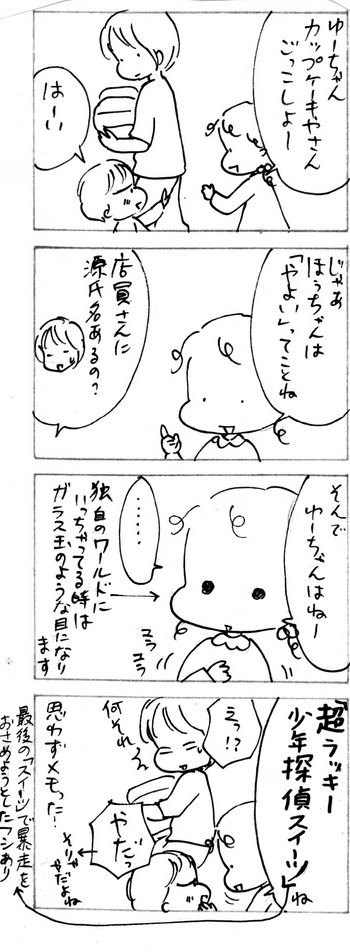 ゆーちゃん
カップケーキやさん
ごっこしよー
はーい
じゃあ
ほぅちゃんは
「やよい」ってことね
店員さんに
源氏名あるの?
そんで
ゆーちゃんはねー
・・・・・・
独自のワールドに
いっちゃってる時は
ガラス玉のような目になり
ます
ユラ
ユラ
「超ラッキー
少年探偵スイーツ」ね
えっ!?
何それ
やだっ
思わずメモった!
そりゃ
やだよね
最後の「スイーツ」で暴走を
おさめようとしたフシあり